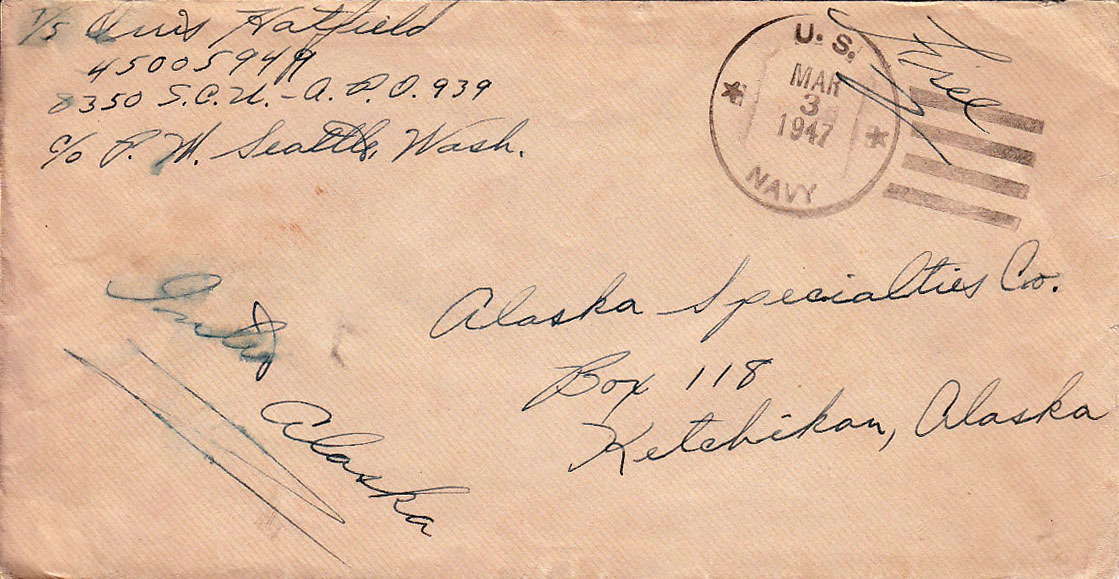 T/5 Hatfield
45005949
8350 S.C.U. - A.P.O. 939
c/o P.M. Seattle, Wash.
U.S.
MAR
3
1947
NAVY
Free
Alaska Specialties Co.
Box 118
Ketchikan, Alaska
Alaska